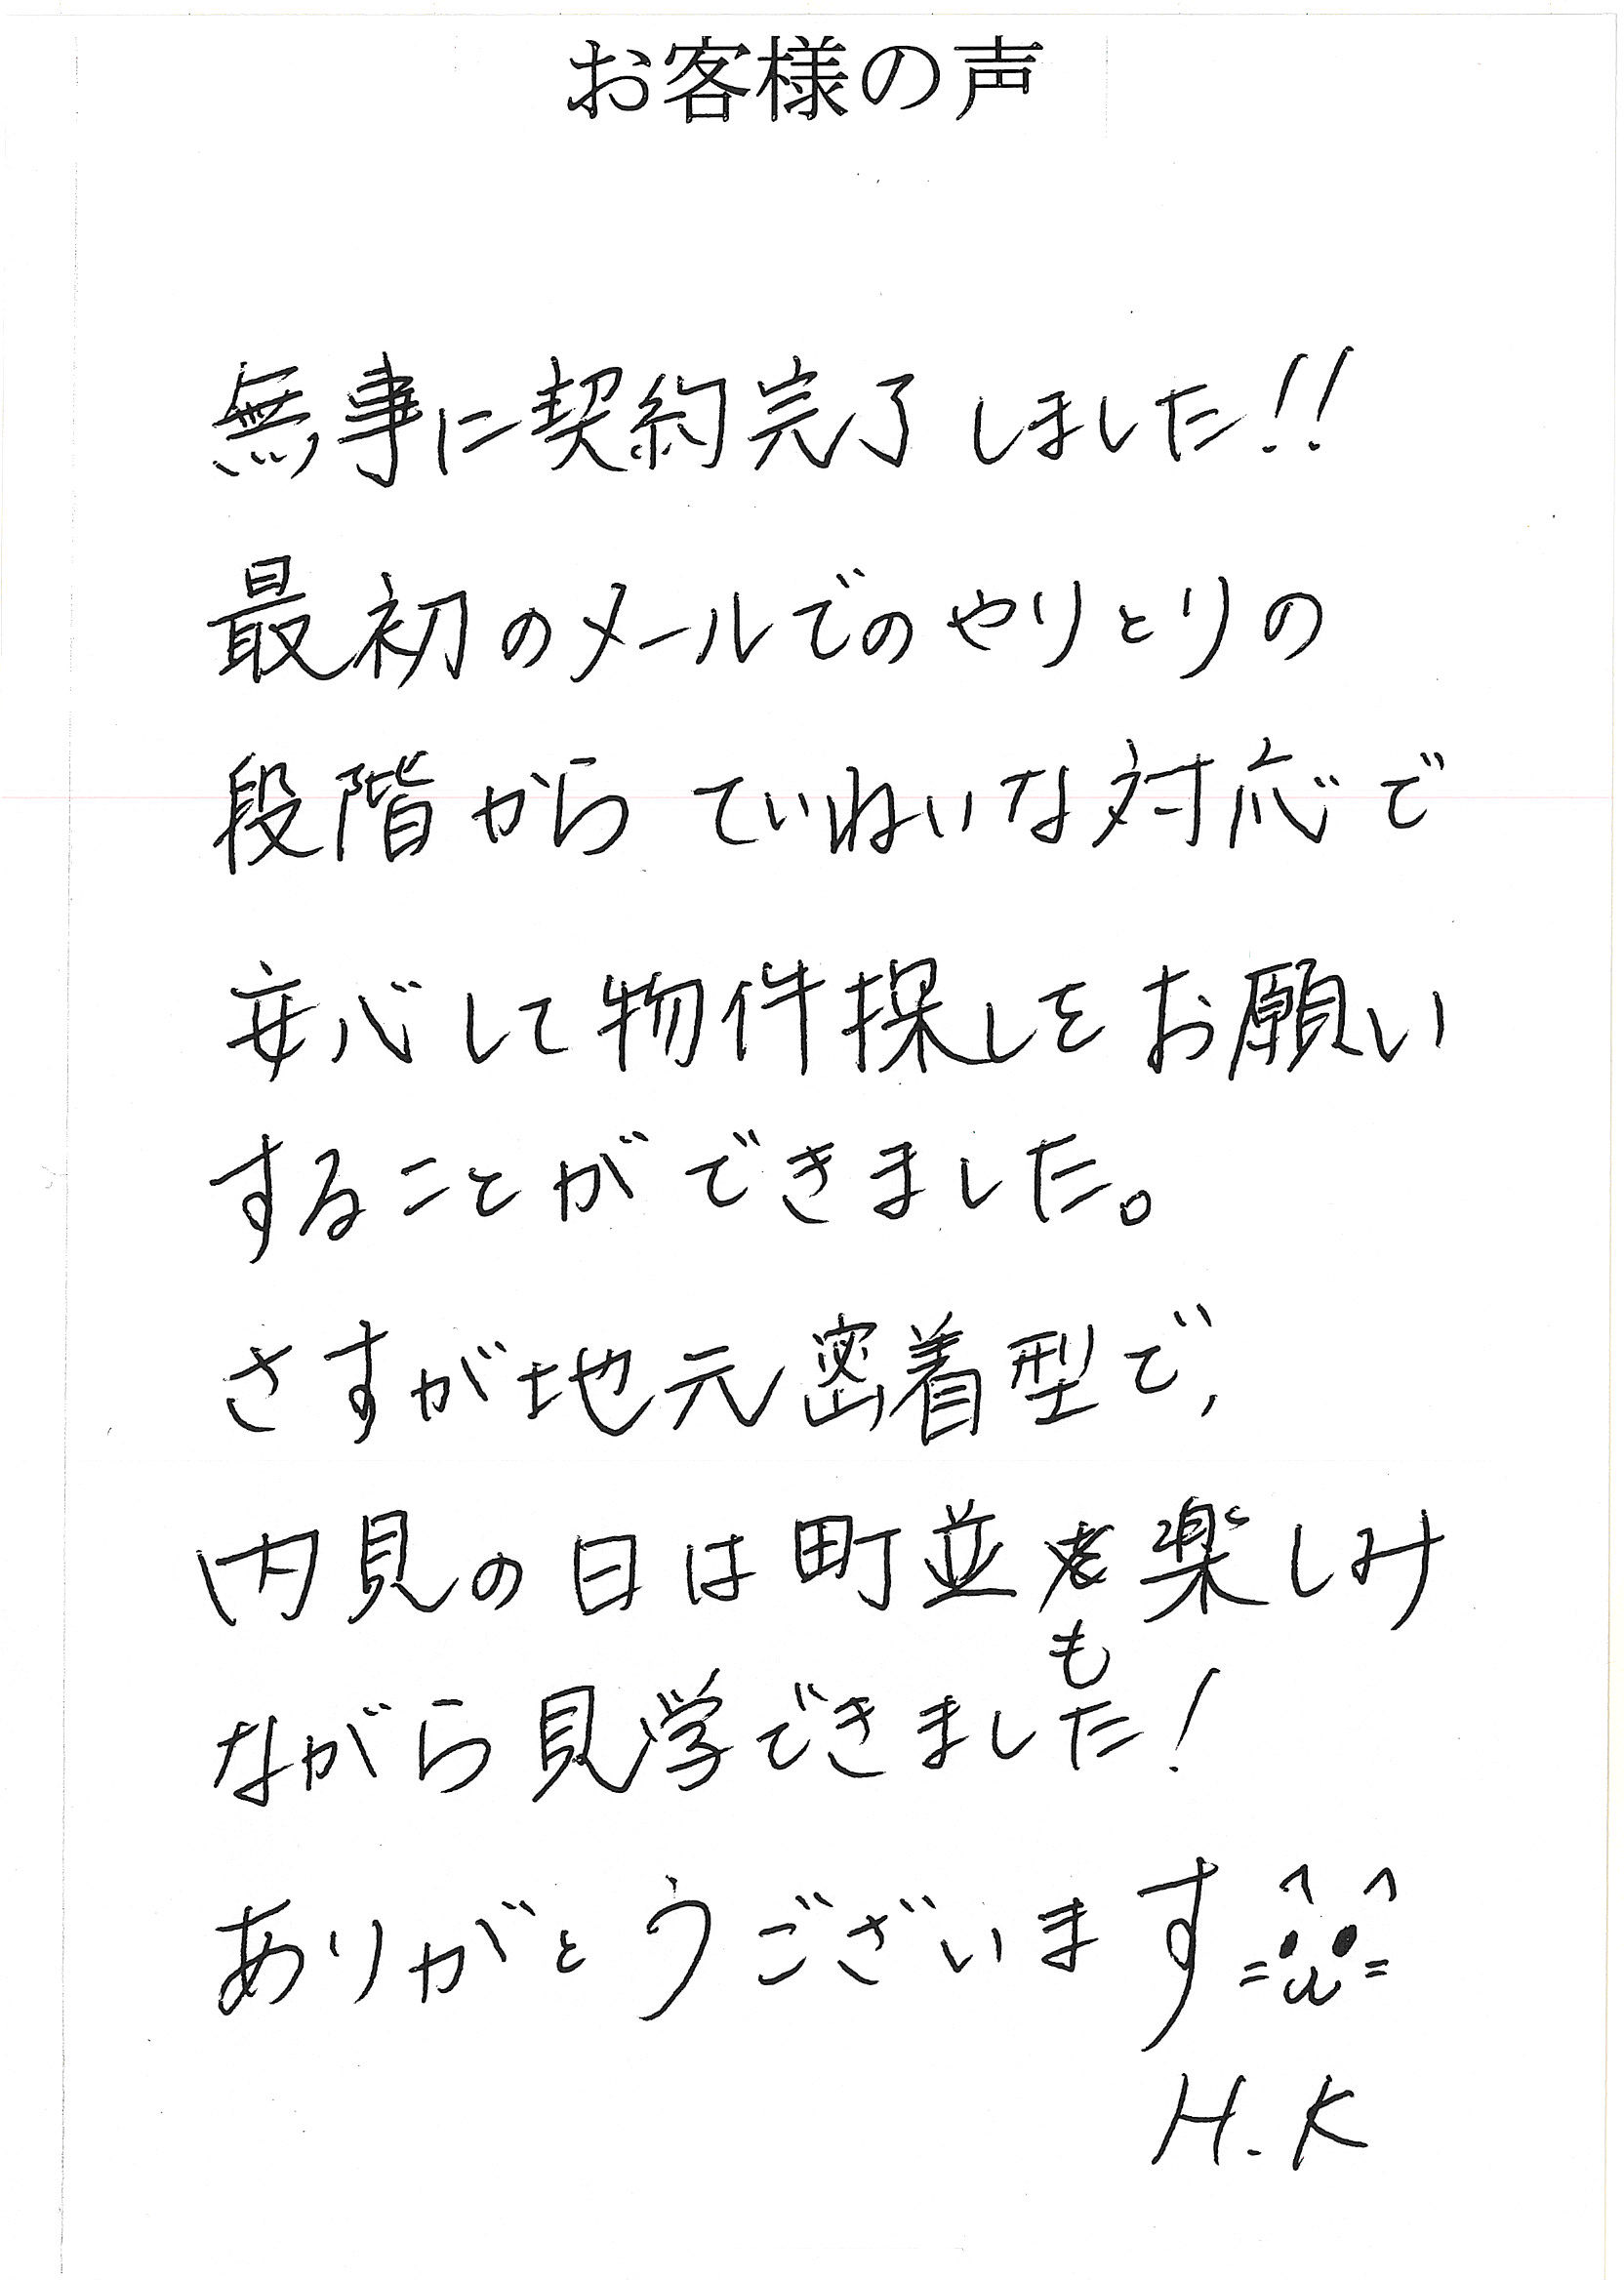 お客様の声
無事に契約完了しました!!
最初のメールでのやりとりの
段階からていねいな対応で
安心して物件探しをお願い
することができました。
さすが地元密着型で,
内見の日は町並も楽しみ
ながら見学できました!
ありがとうございます
H.K